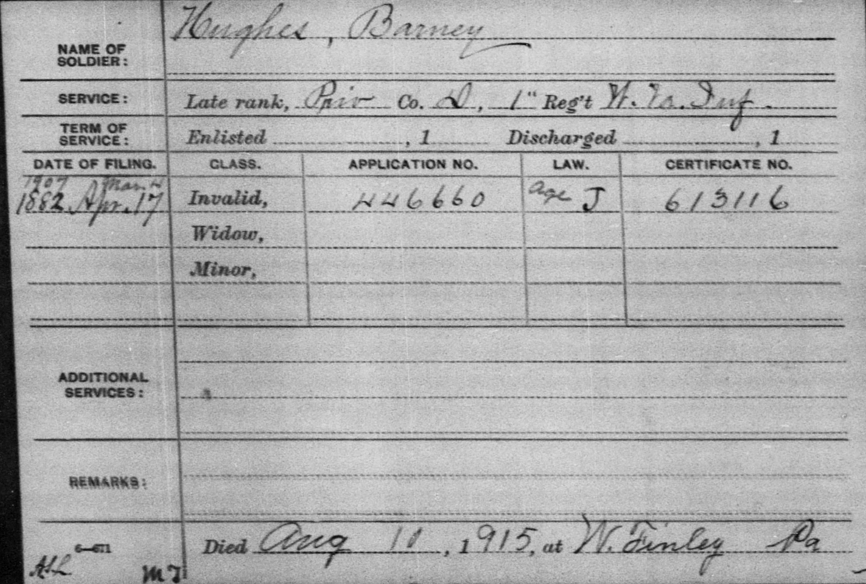 Hughes, Barney
NAME OF
SOLDIER:
SERVICE: Late rank, Priv Co. D, 1" Reg't W. Va. Inf.
TERM OF
SERVICE: Enlisted , 1 Discharged , 1
DATE OF FILING. CLASS. APPLICATION NO. LAW. CERTIFICATE NO.
1907 Mar. 4
1882 Apr. 17 Invalid, 446660 Age J 613116
Widow,
Minor,
ADDITIONAL
SERVICES:
REMARKS:
6—671 Died Aug 10, 1915, at W. Finley Pa